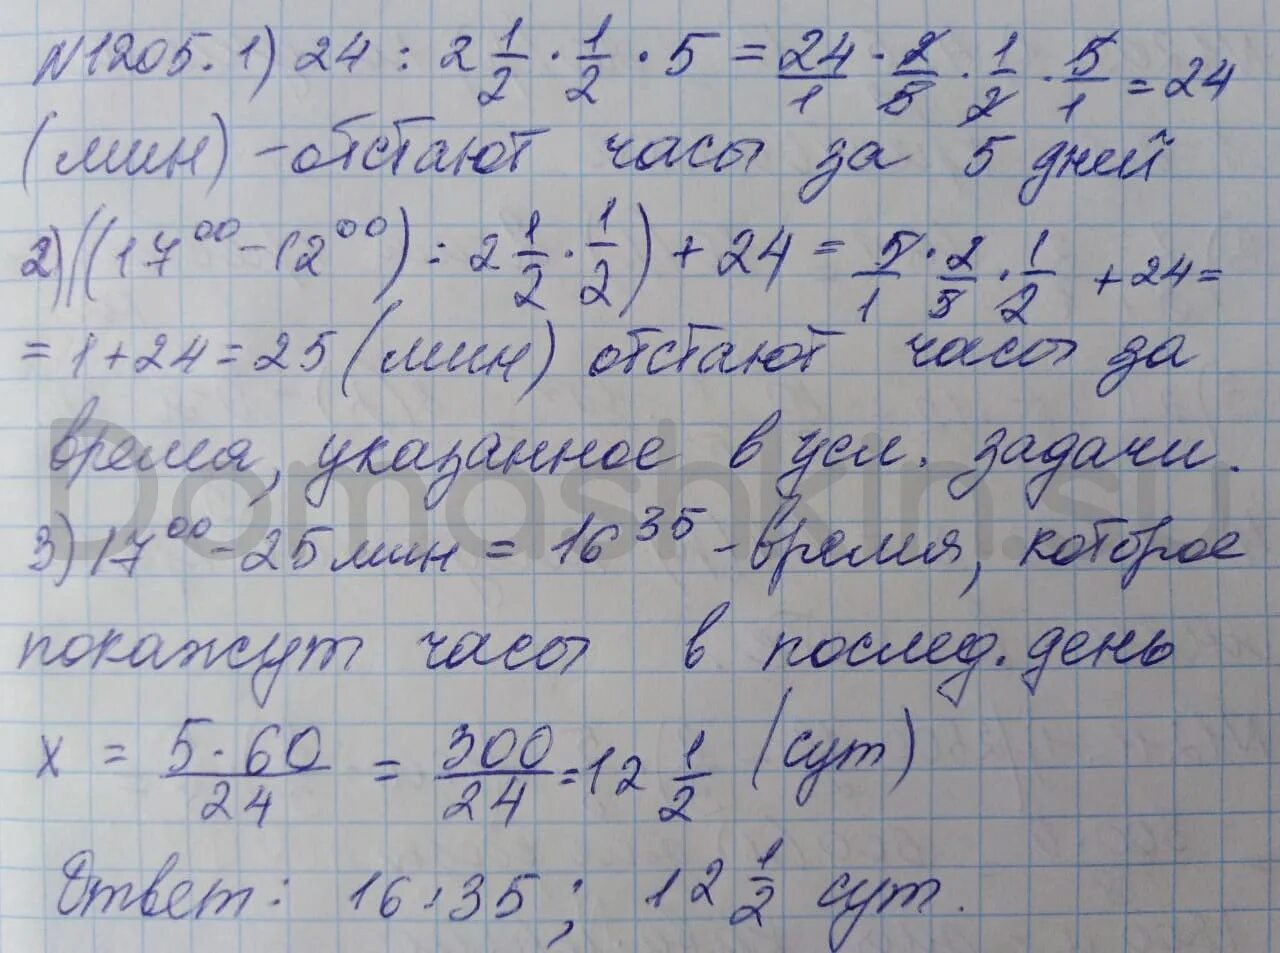 №1205. 1) 24 : 2 1/2 · 1/2 · 5 = 24/1 · 2/5 · 1/2 · 5/1 = 24
(мин) - отстают часы за 5 дней
2) ((17⁰⁰ - 12⁰⁰) : 2 1/2 · 1/2) + 24 = 5/1 · 2/5 · 1/2 + 24 =
= 1 + 24 = 25 (мин) отстают часы за
время, указанное в усл. задачи.
3) 17⁰⁰ - 25 мин = 16³⁵ - время, которое
покажут часы в послед. день
x = 5·60/24 = 300/24 = 12 1/2 (сут)
Ответ: 16:35; 12 1/2 сут.
Domashkin.su